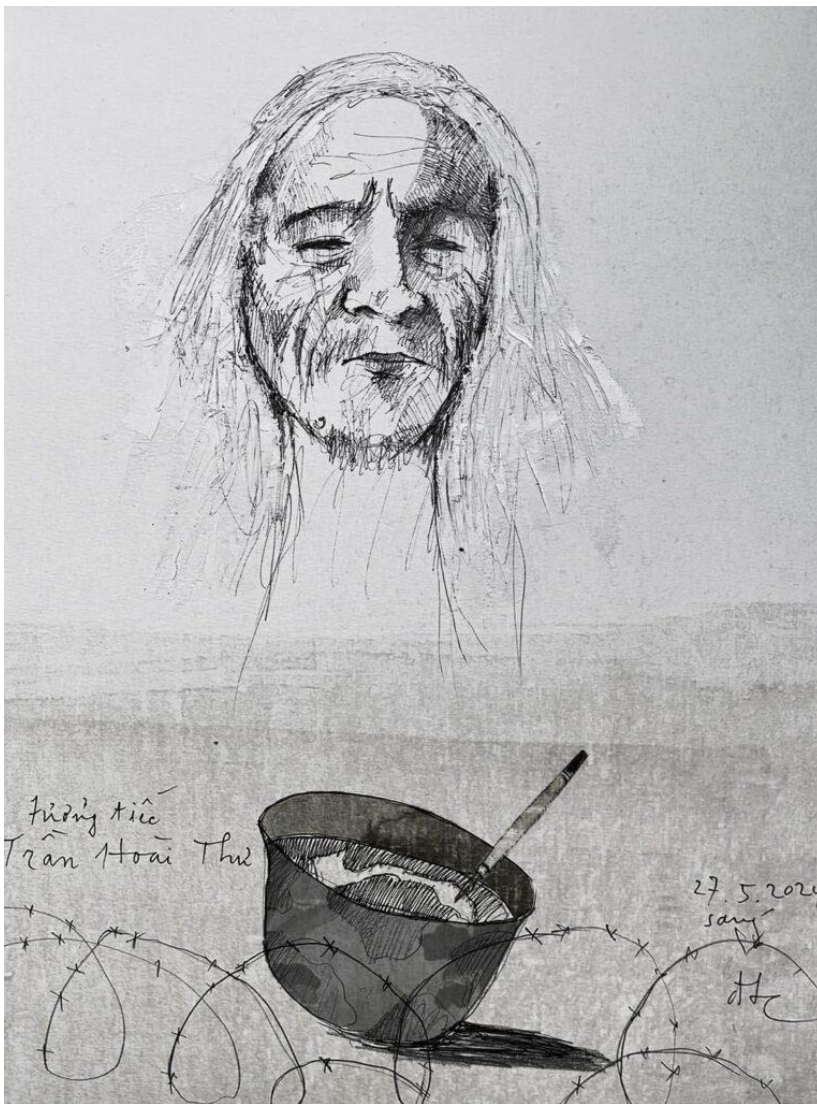 tưởng tiếc
Trần Hoài Thư
27.5.202
sáng